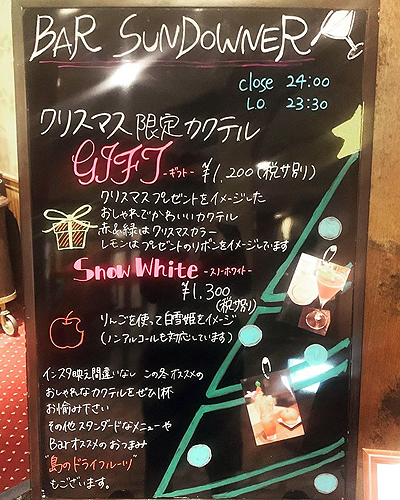 BAR SUNDOWNER
close 24:00
L.O. 23:30
クリスマス限定カクテル
GIFT -ギフト- ¥1,200(税サ別)
クリスマスプレゼントをイメージした
おしゃれでかわいいカクテル
赤&緑はクリスマスカラー
レモンはプレゼントのリボンをイメージしています
Snow White -スノーホワイト-
¥1,300
(税サ別)
りんごを使って白雪姫をイメージ
(ノンアルコールも対応しています)
インスタ映え間違いなし この冬オススメの
おしゃれなカクテルをぜひ1杯
お愉み下さい
その他スタンダードなメニューや
Barオススメのおつまみ
"島のドライフルーツ"
もございます。